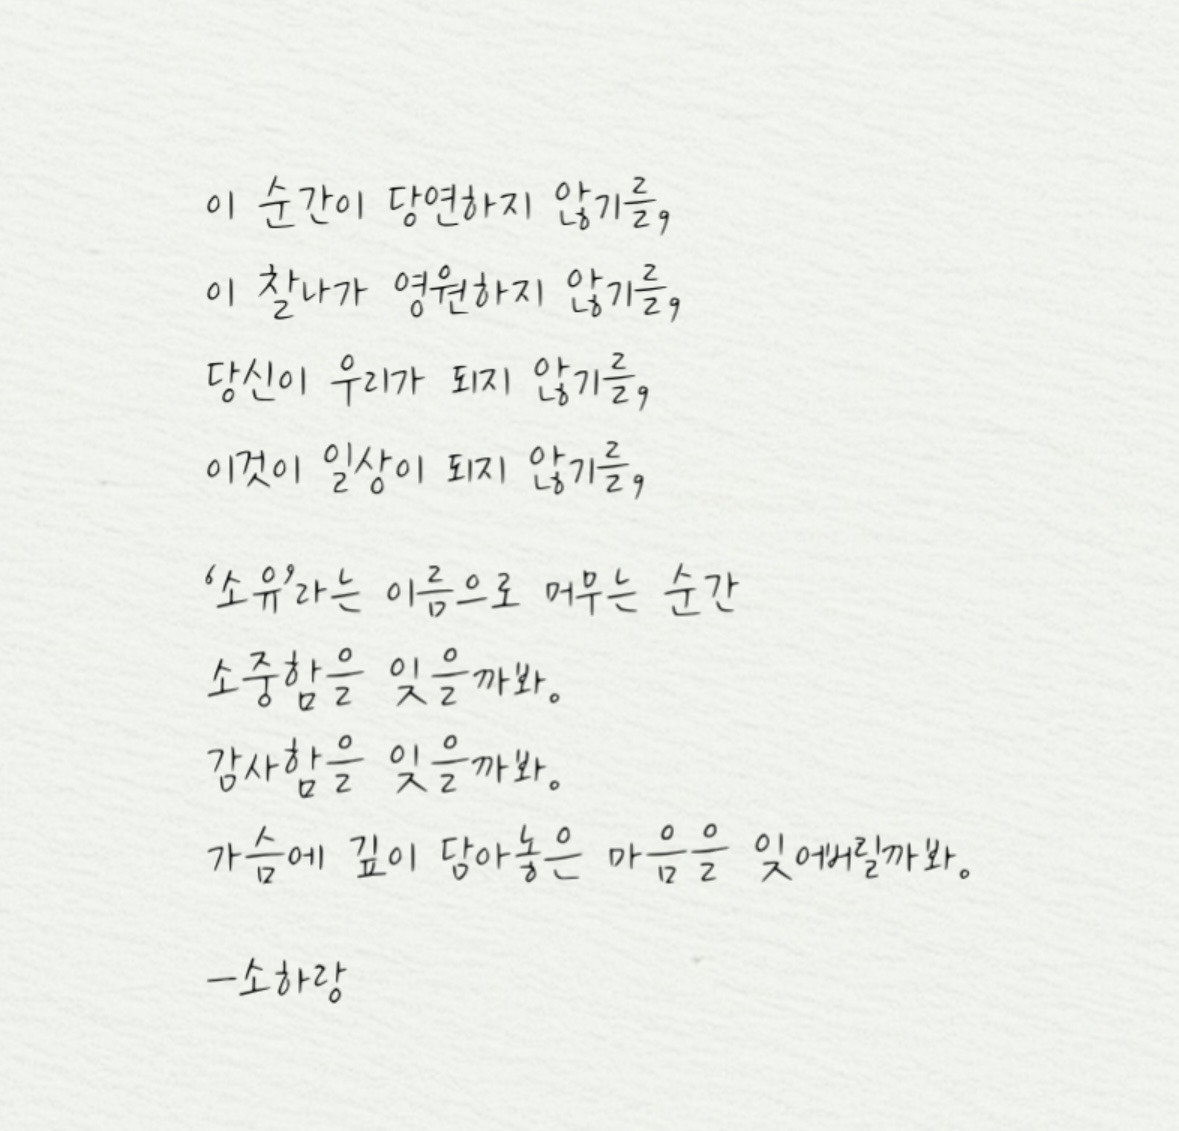 이 순간이 당연하지 않기를,
이 찰나가 영원하지 않기를,
당신이 우리가 되지 않기를,
이것이 일상이 되지 않기를,
‘소유’라는 이름으로 머무는 순간
소중함을 잊을까봐。
감사함을 잊을까봐。
가슴에 깊이 담아놓은 마음을 잊어버릴까봐。
-소하랑